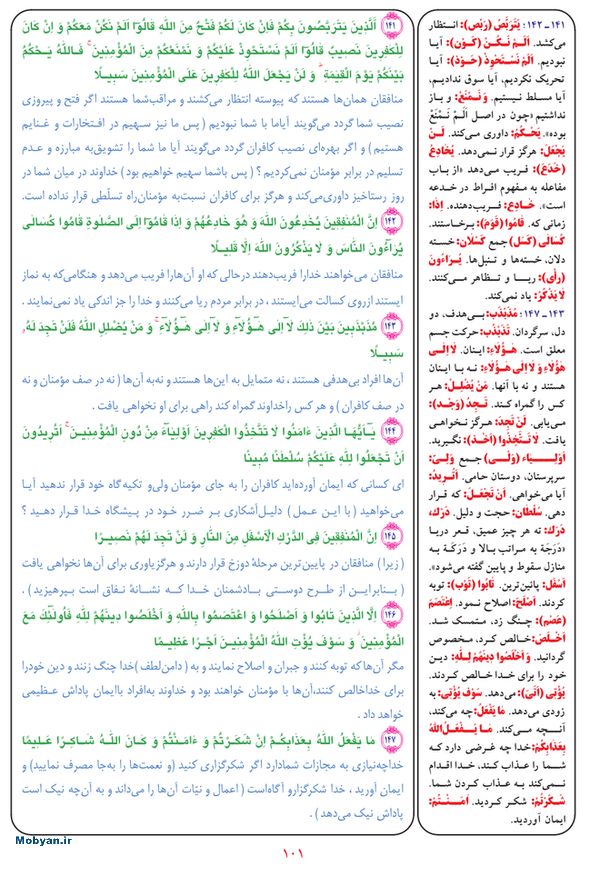 ۱۴۱ـ۱۴۲: یَتَرَبَّصُ (رَبْص): انتظار
می‌کشد. اَلَـمْ نَـکُـنْ (کَـوْن): آیـا
نبودیم. اَلَـمْ نَسْتَحْوِذْ (حَـوْذ): آیـا
تحریک نکردیم، آیا سوق ندادیم،
آیا مسلط نیستیم. وَ نَـمْـنَعْ: و باز
نداشتیم «چون در اصل اَلَمْ نَـمْنَعْ
بوده». یَـحْـکُـمُ: داوری می‌کند. لَـنْ
یَجْعَلَ: هرگز قرار نمی‌دهد. یُخادِعُ
(خَدَعَ): فریب می‌دهد «از باب
مفاعله به مفهوم افراط در خدعه
است». خـادِع: فریب‌دهنده. اِذا:
زمانی که. قـامُوا (قَوْم): برخاستند.
کُسالی (کَسَل) جمع کَسْلان: خسته
دلان، خسته‌ها و تنبل‌ها. یُـراءُونَ
(رِأی): ریـا و تظاهر می‌کنند.
لا یَذْکُرُ: یاد نمی‌کند.
۱۴۳ـ۱۴۷: مُذَبْذَب: بی‌هدف، دو
دل، سرگردان. تَذَبْذُب: حرکت جسم
معلق است. هٰؤُلاءِ: اینان. لا اِلی
هٰؤُلاءِ وَ لا اِلی هٰؤُلاءِ: نه با اینان
هستند و نه با آنها. مَنْ یُضْلِلْ: هر
کس را گمراه کند. تَـجِدُ (وَجَدَ):
می‌یابی. لَنْ تَجِدَ: هرگز نخواهی
یافت. لا تَتَّخِذُوا (اَخَذَ): نگیرید.
اَوْلِیاء (وَلی) جمع وَلیّ:
سرپرستان، دوستان حامی. اَتُرید:
آیا می‌خواهی. اَنْ تَجْعَلَ: که قرار
دهی. سُلْطان: حجت و دلیل. دَرَک،
دَرْک: ته هر چیز عمیق، قعر دریا
«دَرَجَة به مراتب بالا و دَرَکَة به
منازل سقوط و پایین گفته می‌شود».
اَسْفَل: پائین‌ترین. تابُوا (تَوْب): توبه
کردند. اَصْلَحَ: اصلاح نمود. اِعْتَصَمَ
(عَصَمَ): چنگ زد، متمسک شد.
اَخْلَصَ: خالص کرد، مخصوص
گردانید. وَ اَخْلَصُوا دینَهُمْ لِلّهِ: دین
خود را برای خدا خالص کردند.
یُؤْتی (اَتیٰ): می‌دهد. سَوْفَ یُؤْتی: به
زودی می‌دهد. ما یَفْعَلُ: چه می‌کند،
آنچه می‌کند. ما یَـفْـعَـلُ اللهُ
بِعَذابِکُمْ: خدا چه غرضی دارد که
شما را عذاب کند، خدا اقدام
نمی‌کند به عذاب کردن شما.
شَکَرْتُمْ: شکر کردید. اٰمَـنْـتُـمْ:
ایمان آوردید.
۱۴۱ اَلَّذینَ یَتَرَبَّصُونَ بِکُمْ فَاِنْ کانَ لَکُمْ فَتْحٌ مِنَ اللهِ قالُوٓا اَلَمْ نَکُنْ مَعَکُمْ وَ اِنْ کانَ
لِلْکٰفِرینَ نَصیبٌ قالُوٓا اَلَـمْ نَسْتَحْوِذْ عَلَیْکُمْ وَ نَمْنَعْکُمْ مِنَ الْمُؤْمِنینَ ۚ فَـاللهُ یَـحْکُمُ
بَیْنَکُمْ یَوْمَ الْقِیٰمَةِ ۗ وَ لَنْ یَجْعَلَ اللهُ لِلْکٰفِرینَ عَلَی الْمُؤْمِنینَ سَبیـلًا
منافقان همان‌ها هستند که پیوسته انتظار می‌کشند و مراقب‌شما هستند اگر فتح و پیروزی
نصیب شما گردد می‌گویند آیاما با شما نبودیم ( پس ما نیز سهیم در افتخارات و غنایم
هستیم ) و اگر بهره‌ای نصیب کافران گردد می‌گویند آیا ما شما را تشویق‌به مبارزه و عدم
تسلیم در برابر مؤمنان نمی‌کردیم ؟ ( پس باشما سهیم خواهیم بود ) خداوند در میان شما در
روز رستاخیز داوری‌می‌کند و هرگز برای کافران نسبت‌به مؤمنان‌راه تسلّطی قرار نداده است.
۱۴۲ اِنَّ الْمُنٰفِقینَ یُخٰدِعُونَ اللهَ وَ هُوَ خادِعُهُمْ وَ اِذا قامُوٓا اِلَی الصَّلٰوةِ قامُوا کُسالٰی
یُرآءُونَ النّاسَ وَ لا یَذْکُرُونَ اللهَ اِلّا قَلیـلًا
منافقان می‌خواهند خدارا فریب‌دهند درحالی که او آن‌هارا فریب می‌دهد و هنگامی‌که به نماز
ایستند ازروی کسالت می‌ایستند ، در برابر مردم ریا می‌کنند و خدا را جز اندکی یاد نمی‌نمایند .
۱۴۳ مُذَبْذَبینَ بَیْنَ ذٰلِکَ لآ اِلٰی هٰٓـؤُلآءِ وَ لآ اِلٰی هٰٓـؤُلآءِ ۚ وَ مَنْ یُضْلِلِ اللهُ فَلَنْ تَجِدَ لَهُ
سَبیـلًا
آن‌ها افراد بی‌هدفی هستند ، نه متمایل به این‌ها هستند و نه‌به آن‌ها ( نه در صف مؤمنان و نه
در صف کافران ) و هر کس راخداوند گمراه کند راهی برای او نخواهی یافت .
۱۴۴ یٰٓـاَیُّهَا الَّذینَ ءٰامَنُوا لا تَتَّخِذُوا الْکٰفِرینَ اَوْلِیٰٓاءَ مِنْ دُونِ الْمُؤْمِنینَ ۚ اَتُریدُونَ
اَنْ تَجْعَلُوا لِلّٰهِ عَلَیْکُمْ سُلْطٰنًا مُبینًا
ای کسانی که ایمان آورده‌اید کافران را به جای مؤمنان ولی‌و تکیه‌گاه خود قرار ندهید آیا
می‌خواهید ( با این عمل ) دلیل‌آشکاری بر ضرر خود در پیشگاه خدا قرار دهید ؟
۱۴۵ اِنَّ الْمُنٰفِقینَ فِی الدَّرْکِ الْاَسْفَلِ مِنَ النّارِ وَ لَنْ تَجِدَ لَهُمْ نَصیـرًا
( زیرا ) منافقان در پایین‌ترین مرحلهٔ دوزخ قرار دارند و هرگزیاوری برای آن‌ها نخواهی یافت
( بنابراین از طرح دوستی بادشمنان خدا که نشانهٔ نفاق است بپرهیزید ) .
۱۴۶ اِلَّا الَّذینَ تابُوا وَ اَصْلَحُوا وَ اعْتَصَمُوا بِاللهِ وَ اَخْلَصُوا دینَهُمْ لِلّٰهِ فَاُولٰٓئِکَ مَعَ
الْمُؤْمِنینَ ۖ وَ سَوْفَ یُؤْتِ اللهُ الْمُؤْمِنینَ اَجْرًا عَظیـمًا
مگر آن‌ها که توبه کنند و جبران و اصلاح نمایند و به ( دامن‌لطف )خدا چنگ زنند و دین خودرا
برای خداخالص کنند،آن‌ها با مؤمنان خواهند بود و خداوند به‌افراد باایمان پاداش عظیمی
خواهد داد .
۱۴۷ ما یَفْعَلُ اللهُ بِعَذابِکُمْ اِنْ شَکَرْتُمْ وَ ءٰامَنْتُمْ ۚ وَ کانَ اللهُ شاکِرًا عَلیـمًا
خداچه‌نیازی به مجازات شمادارد اگر شکرگزاری کنید (و نعمت‌ها را به‌جا مصرف نمایید) و
ایمان آورید ، خدا شکرگزارو آگاه‌است ( اعمال و نیّات آن‌ها را می‌داند و به آن‌چه نیک است
پاداش نیک می‌دهد ) .
Mobyan.ir
۱۰۱